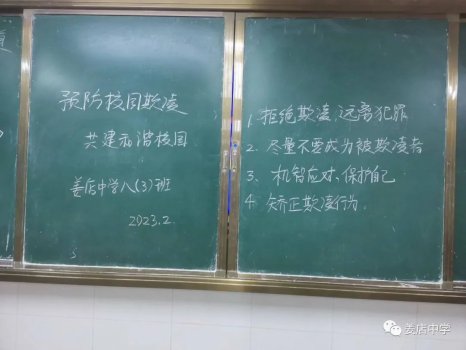 预防校园欺凌
共建和谐校园
姜店中学八(3)班
2023.2
1. 拒绝欺凌,远离犯罪
2. 尽量不要成为被欺凌者
3. 机智应对、保护自己
4. 矫正欺凌行为.
姜店中学